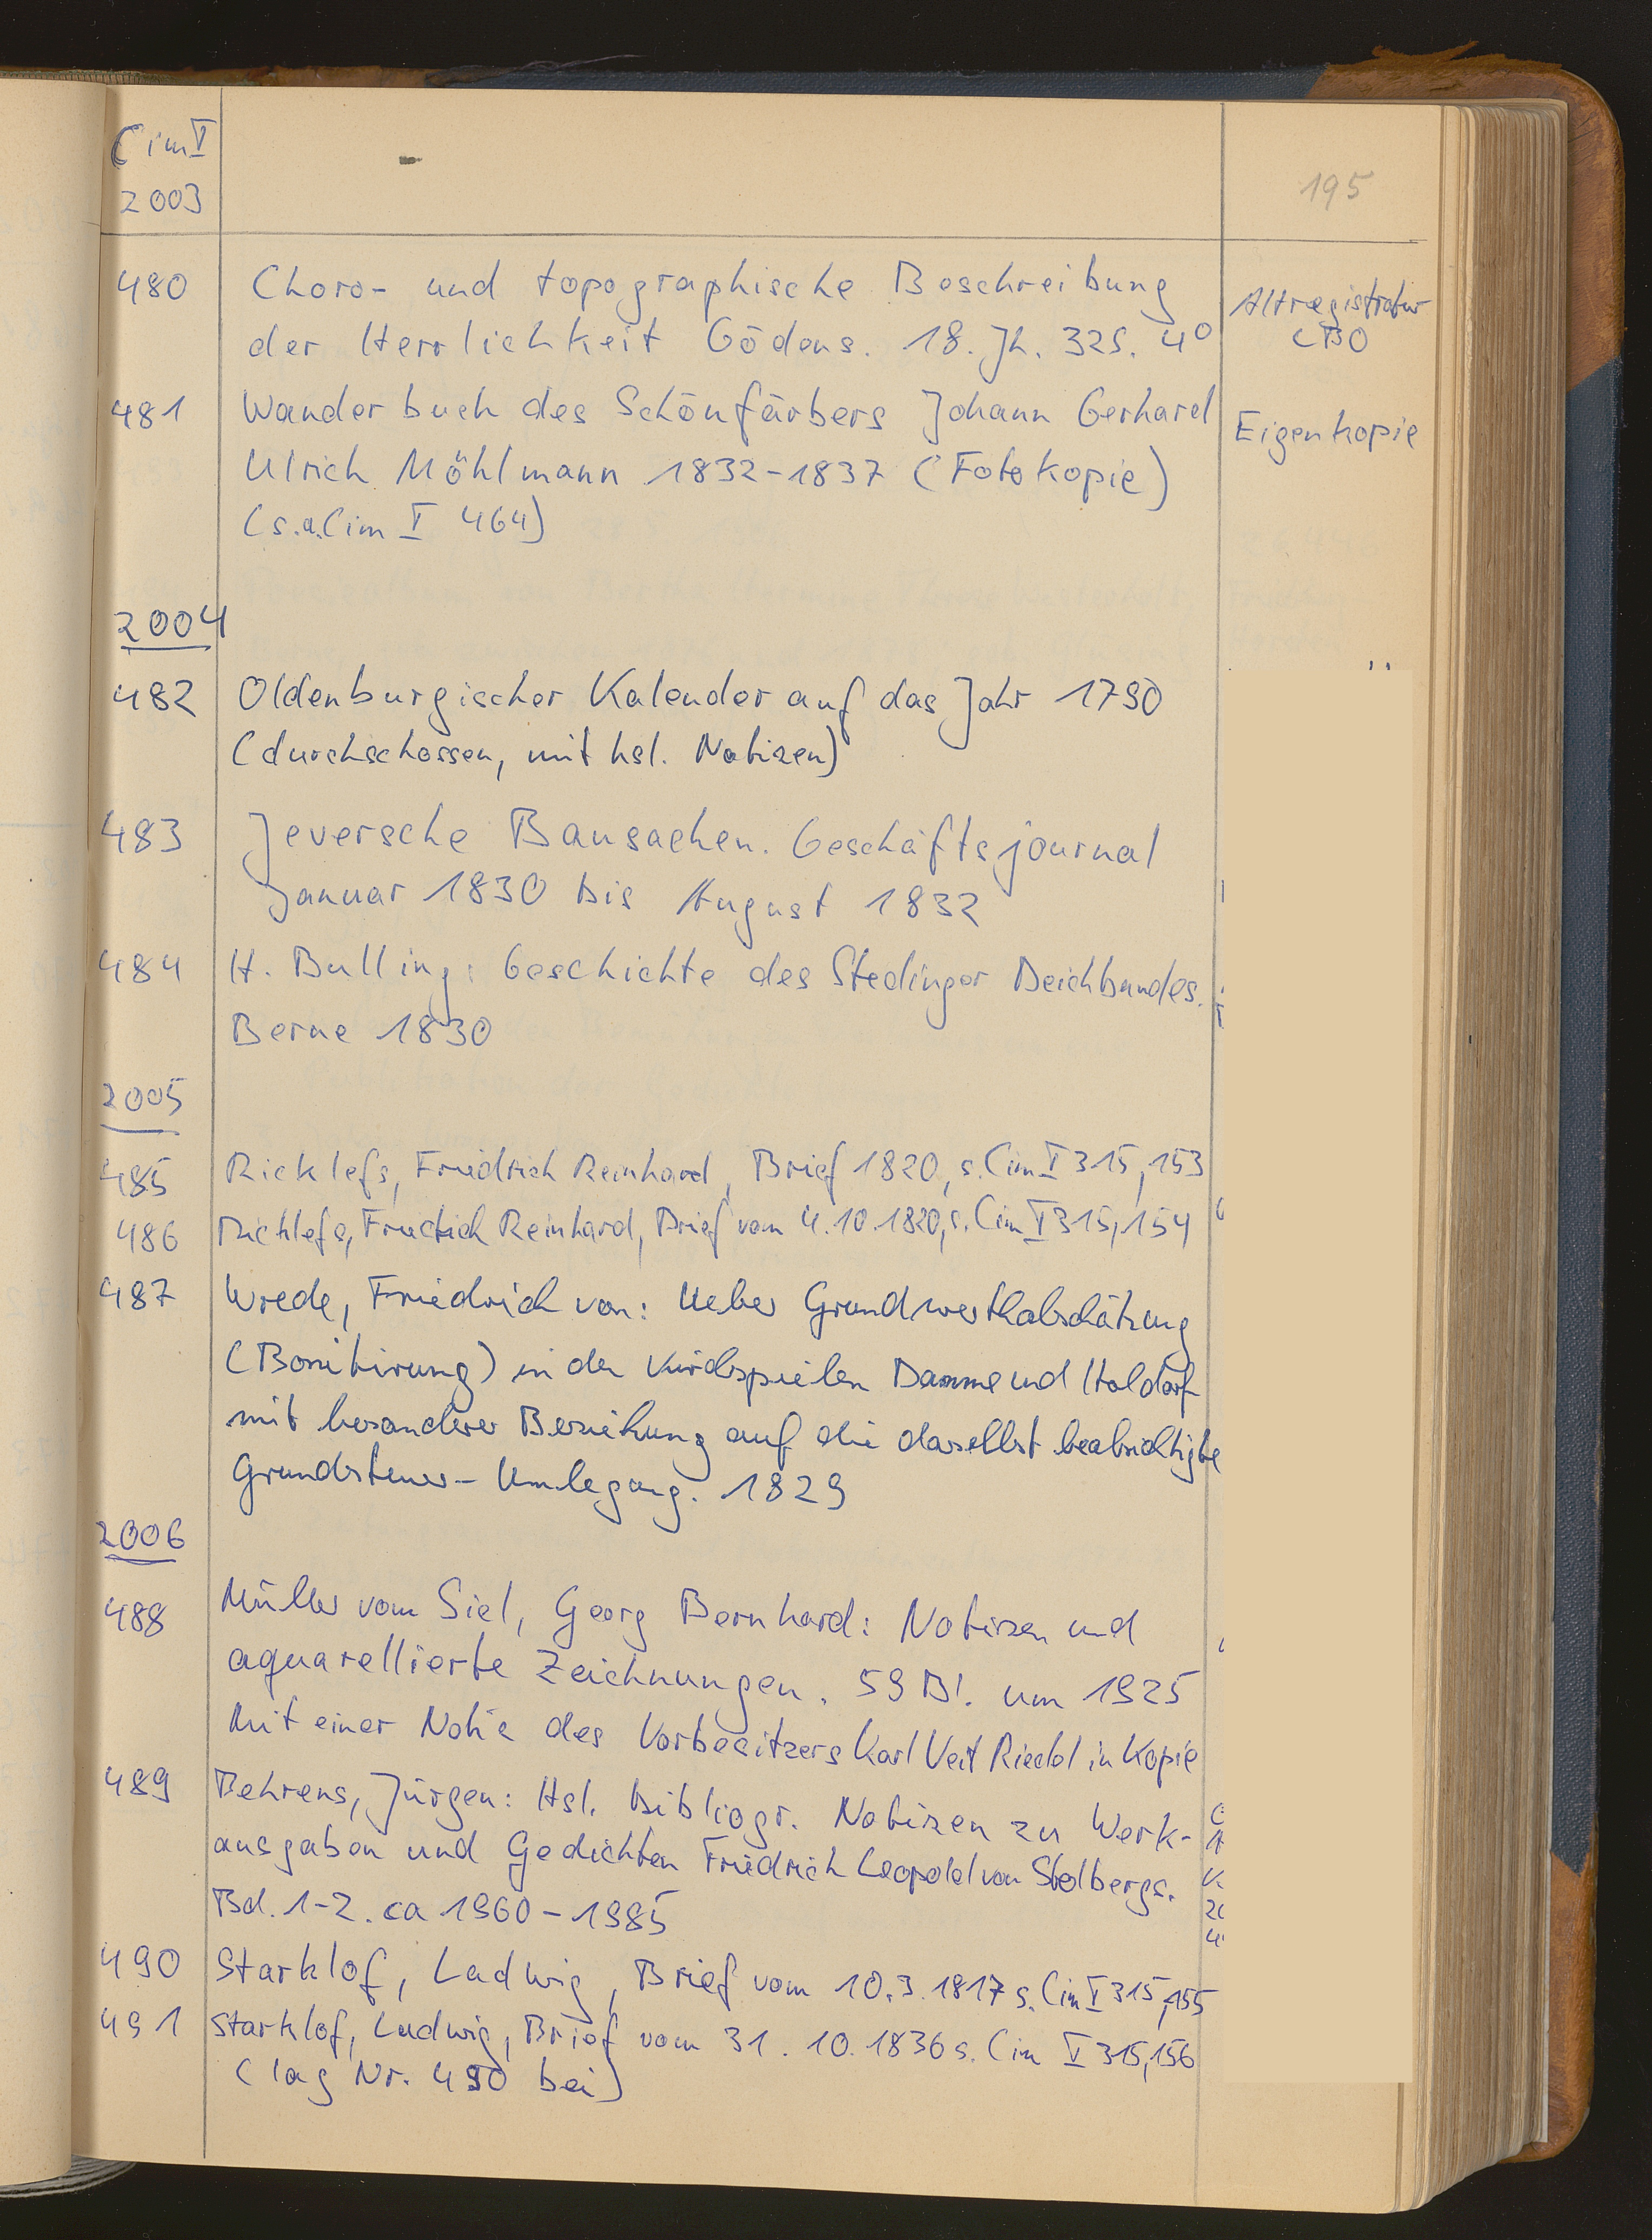 Cim I
2003
195
480 Choro- und topographische Beschreibung
der Herrlichkeit Gödens. 18. Jh. 32 S. 4°
Altregistratur
LBO
481 Wanderbuch des Schönfärbers Johann Gerhard
Ulrich Möhlmann 1832-1837 (Fotokopie)
(s.a. Cim I 464)
Eigenkopie
2004
482 Oldenburgischer Kalender auf das Jahr 1790
(durchschossen, mit hsl. Notizen)
483 Jeversche Bausachen. Geschäftsjournal
Januar 1830 bis August 1832
484 H. Bulling: Geschichte des Stedinger Deichbandes.
Berne 1830
2005
485 Ricklefs, Friedrich Reinhard, Brief 1820, s. Cim I 315,153
486 Ricklefs, Friedrich Reinhard, Brief vom 4.10.1820, s. Cim I 315,154
487 Wrede, Friedrich von: Ueber Grundwerthabschätzung
(Bonitirung) in den Kirchspielen Damme und Holdorf
mit besonderer Beziehung auf die daselbst beabsichtigte
Grundsteuer-Umlegung. 1829
2006
488 Müller vom Siel, Georg Bernhard: Notizen und
aquarellierte Zeichnungen. 59 Bl. um 1925
Mit einer Notiz des Vorbesitzers Karl Veit Riedel in Kopie
489 Behrens, Jürgen: Hsl. bibliogr. Notizen zu Werk-
ausgaben und Gedichten Friedrich Leopold von Stolbergs.
Bd. 1-2. ca 1960-1985
490 Starklof, Ludwig, Brief vom 10.3.1817 s. Cim I 315,155
491 Starklof, Ludwig, Brief vom 31.10.1836 s. Cim I 315,156
(lag Nr. 490 bei)